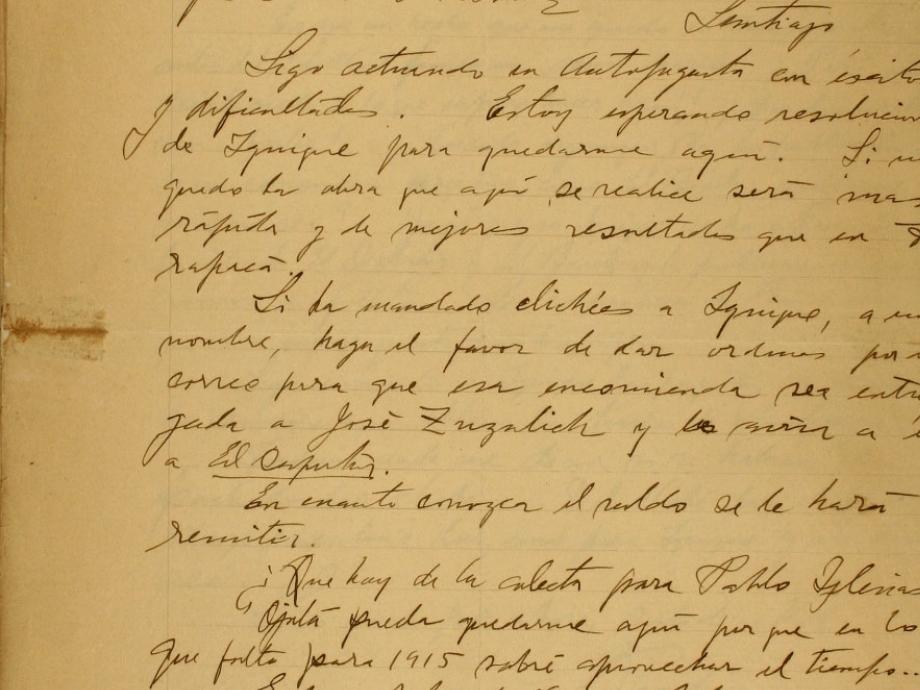 Santiago
Sigo actuando en Antofagasta con éxito
y dificultades. Estoy esperando resolucion
de Iquique para quedarme aquí. Si
quedo la obra que aquí se realice será mas
rápida y de mejores resultados que en
rapacá.
Si ha mandado clichées a Iquique, a
nombre, haga el favor de dar ordenes
correo para que esa encomienda sea entre
gada a José Zuzulich y
a El
En cuanto conozca el saldo se le hará
remitir.
¿Que hay de la colecta para Pablo Iglesias
Ojalá pueda quedarme aquí porque en lo
que falta para 1915 sabré aprovechar el tiempo..